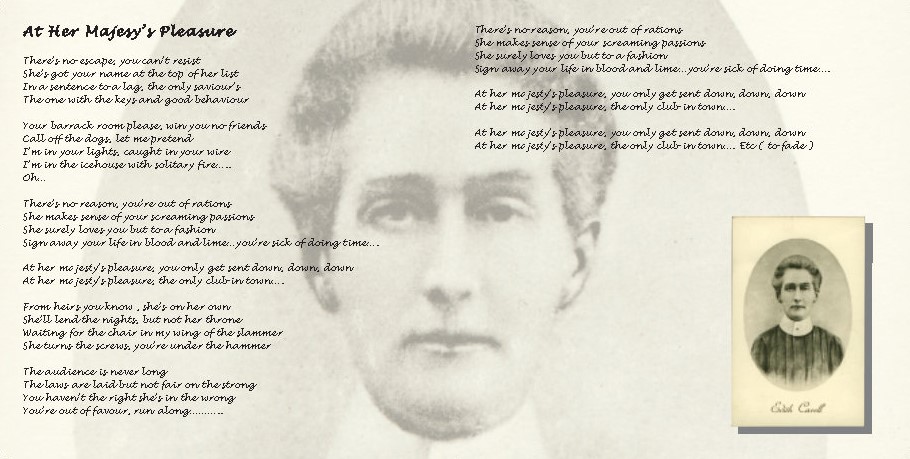 At Her Majesy's Pleasure
There's no escape, you can't resist
She's got your name at the top of her list
In a sentence to a lag, the only saviour's
The one with the keys and good behaviour
Your barrack room please, win you no friends
Call off the dogs, let me pretend
I'm in your lights, caught in your wire
I'm in the icehouse with solitary fire....
Oh...
There's no reason, you're out of rations
She makes sense of your screaming passions
She surely loves you but to a fashion
Sign away your life in blood and lime...you're sick of doing time....
At her majesty's pleasure, you only get sent down, down, down
At her majesty's pleasure, the only club in town....
From heirs you know , she's on her own
She'll lend the nights, but not her throne
Waiting for the chair in my wing of the slammer
She turns the screws, you're under the hammer
The audience is never long
The laws are laid but not fair on the strong
You haven't the right she's in the wrong
You're out of favour, run along..........
There's no reason, you're out of rations
She makes sense of your screaming passions
She surely loves you but to a fashion
Sign away your life in blood and lime...you're sick of doing time....
At her majesty's pleasure, you only get sent down, down, down
At her majesty's pleasure, the only club in town...
At her majesty's pleasure, you only get sent down, down, down
At her majesty's pleasure, the only club in town... Etc ( to fade )
Edith Cavell